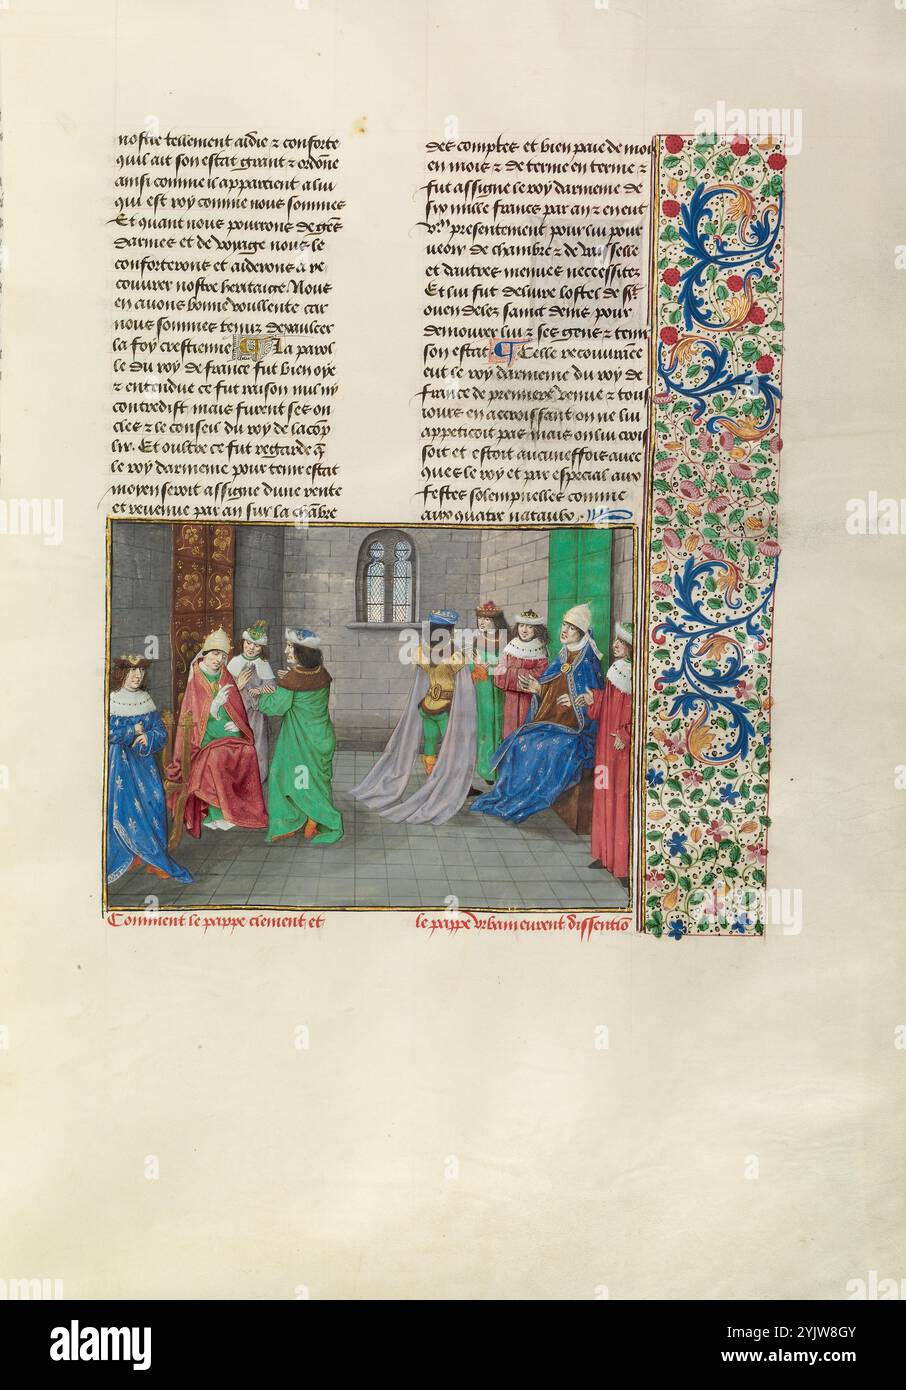 nostre tellement aidie z conforte
quil ait son estat grant z ordone
ainsi comme il appartient a lui
qui est roy comme nous sommes
Et quant nous pourrons de gēs
darmes et de voyage nous le
conforterons et aiderons a re-
couvrer nostre heritaige. Nous
en avons bonne voullente car
nous sommes tenuz dexaulcer
la foy crestienne La parol
le du roy de france fut bien oye
z entendue ce fut raison nul ny
contredist mais furent ses on
cles z le conseil du roy de lacop
lir. Et oultre ce fut regarde q̄
le roy darmenie pour tenir estat
moyen seroit assigne dune rente
et revenue par an sur la chābre
des comptes et bien paie de moi
en mois z de terme en terme z
fut assigne le roy darmenie de
six mille frans par an z en eut
presentement pour lui pour
veoir de chambre z de vaisselle
et dautres menues necessitez
Et lui fut delivre lostel de st
ouen delez saint denis pour
demourer lui z ses gens z tenir
son estat Celle recouvrāce
eut le roy darmenie du roy de
france de premiere venue z tous
iours en accroissant on ne lui
appeticoit pas mais on lui crois
soit et estoit aucuneffois avec
ques le roy et par especial aux
festes solempnelles comme
aux quatre nataulx.
Comment le pappe clement et
le pappe urbain eurent dissentiō
alamy
Image ID: 2YJW8GY
www.alamy.com